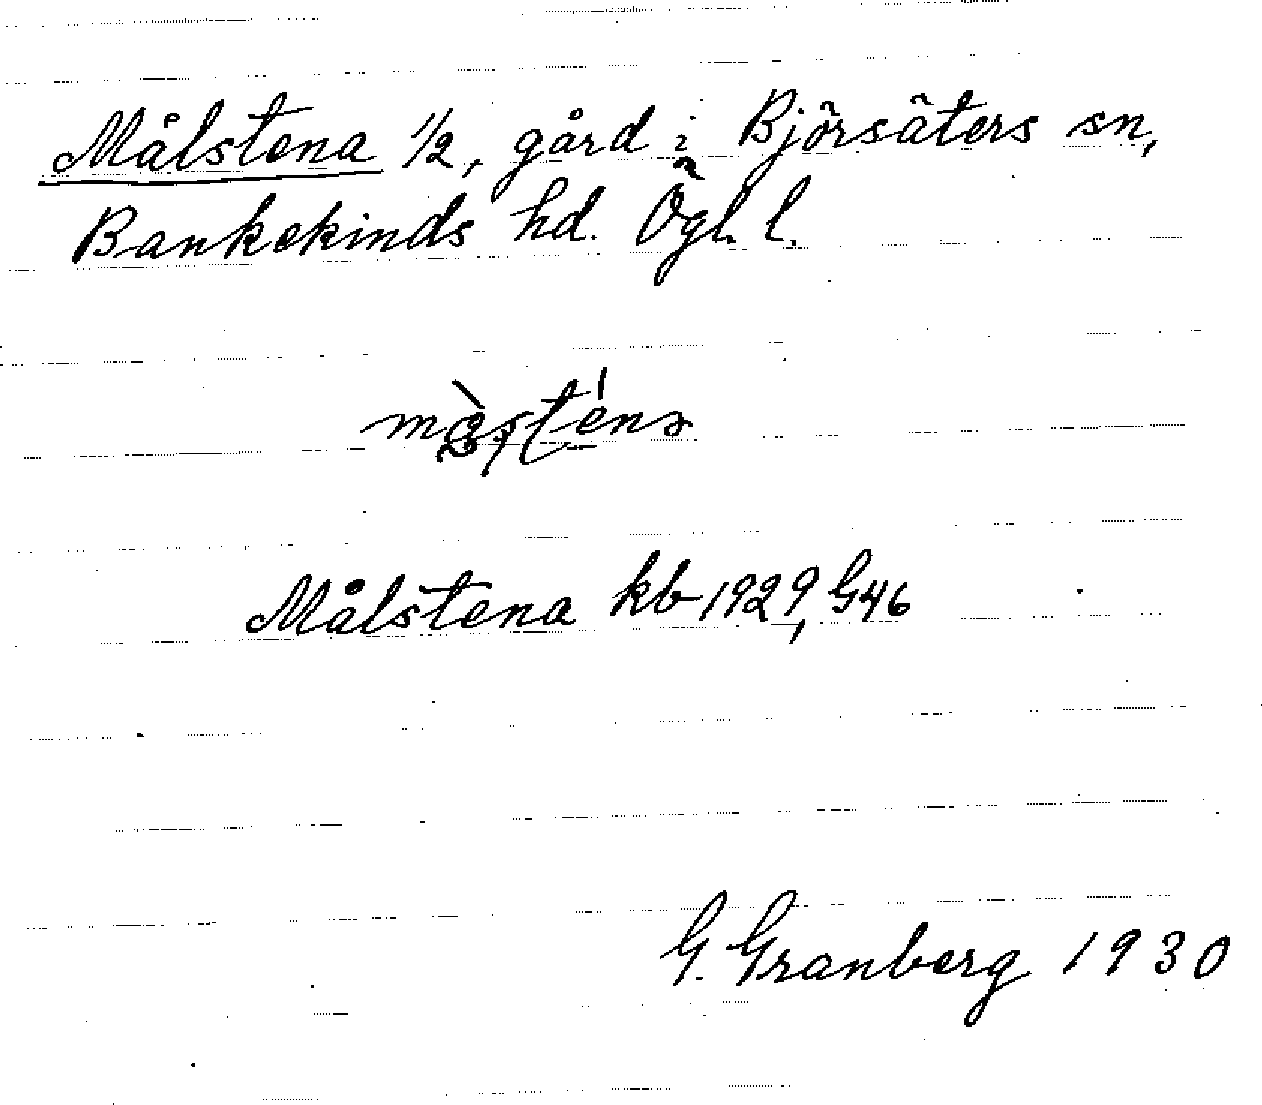 Målstena 1/2, gård i Björsäters sn,
Bankekinds hd. Ögl. l.
Målstena kb 1929, G46
G. Granberg 1930